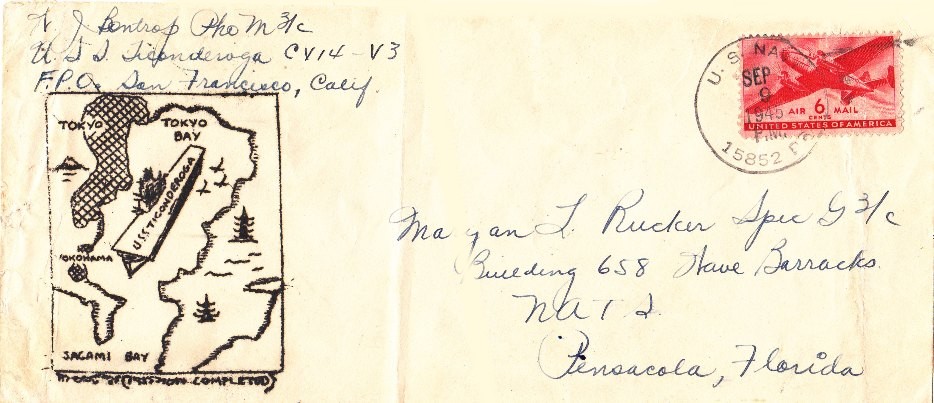 N. J. Bontrop Pho M 3/c
U.S.S. Ticonderoga CV14-V3
F.P.O. San Francisco, Calif.
TOKYO
TOKYO BAY
USS TICONDEROGA
YOKOHAMA
SAGAMI BAY
MISSION COMPLETED
U.S. NA
SEP
9
1945
15852
AIR 6 MAIL
CENTS
UNITED STATES OF AMERICA
L. Rucker Spec G 3/c
Building 658 Wave Barracks
N A T S.
Pensacola, Florida